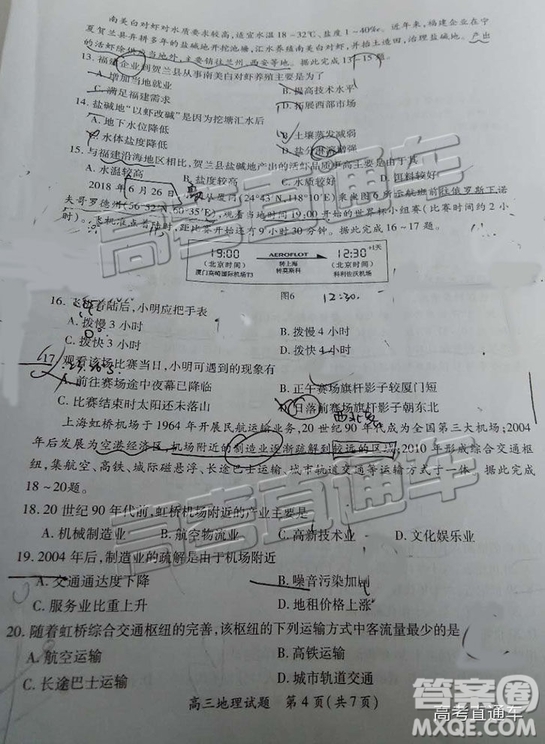 南美白对虾对水质要求较高，适宜水温18~32℃、盐度1~40‰。近年来，福建企业在宁
夏贺兰县弃耕多年的盐碱地开挖池塘，汇水养殖南美白对虾，并抬土造田，治理盐碱地。产出
的活虾除供应当地外，主要销往兰州、西安等地。据此完成13~15题。
13. 福建企业到贺兰县从事南美白对虾养殖主要是为了
A. 增加当地就业
B. 提高技术水平
C. 满足福建需求
D. 拓展西部市场
14. 盐碱地“以虾改碱”是因为挖塘汇水后
A. 地下水位降低
B. 土壤蒸发减弱
C. 水体盐度降低
D. 盐分淋溶增强
15. 与福建沿海地区相比，贺兰县盐碱地产出的活虾品质更高主要是由于其
A. 水温较高
B. 盐度较高
C. 水质较好
D. 饵料较好
2018年6月26日
厦门(24°43′N,118°10′E)乘坐图6所示航班前往俄罗斯王诺
夫哥罗德州(56°32′N,60°35′E)，观看当地时间19:00开始的世界杯小组赛(比赛时间约2小
时)。飞机准点着陆时，距出发连续约9小时30分钟。据此完成16~17题。
19:00
(北京时间)
厦门高崎国际机场T3
AEROFLOT
转上海
转莫斯科
12:30+1天
(北京时间)
科利佐沃机场
图6
12:30.
16. 飞机着陆后，小明应把手表
A. 拨慢3小时
B. 拨慢4小时
C. 拨快3小时
D. 拨快4小时
17
观看该场比赛当日，小明可遇到的现象有
A. 前往赛场途中夜幕已降临
B. 正午赛场旗杆影子较厦门短
C. 比赛结束时太阳还未落山
D. 日落前赛场旗杆影子朝东北
上海虹桥机场于1964年开展民航运输业务，20世纪90年代成为全国第三大机场；2004
年后发展为空港经济区，机场附近的制造业逐渐疏解到较远的区域；2010年形成综合交通枢
纽，集航空、高铁、城际磁悬浮、长途巴士运输、城市轨道交通等运输方式于一体。据此完成
18~20题。
18. 20世纪90年代前，虹桥机场附近的产业主要是
A. 机械制造业
B. 航空物流业
C. 高新技术业
D. 文化娱乐业
19. 2004年后，制造业的疏解是由于机场附近
A. 交通通达度下降
B. 噪音污染加剧
C. 服务业比重上升
D. 地租价格上涨
20. 随着虹桥综合交通枢纽的完善，该枢纽的下列运输方式中客流量最少的是
A. 航空运输
B. 高铁运输
C. 长途巴士运输
D. 城市轨道交通
高三地理试题 第4页(共7页)
高考直通车
高考直通车
答案圈
高考直通车
MXQE.COM